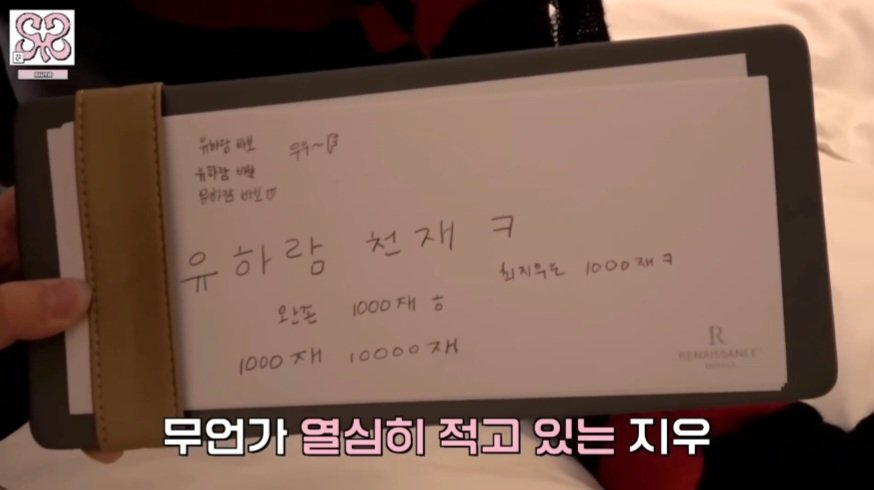 유하람 바보 우우~
유하람 바보
유하람 바보
유하람 천재 ㅋ
최지우도 1000재 ㅋ
완존 1000재 ㅎ
1000재 10000재
R
RENAISSANCE
무언가 열심히 적고 있는 지우